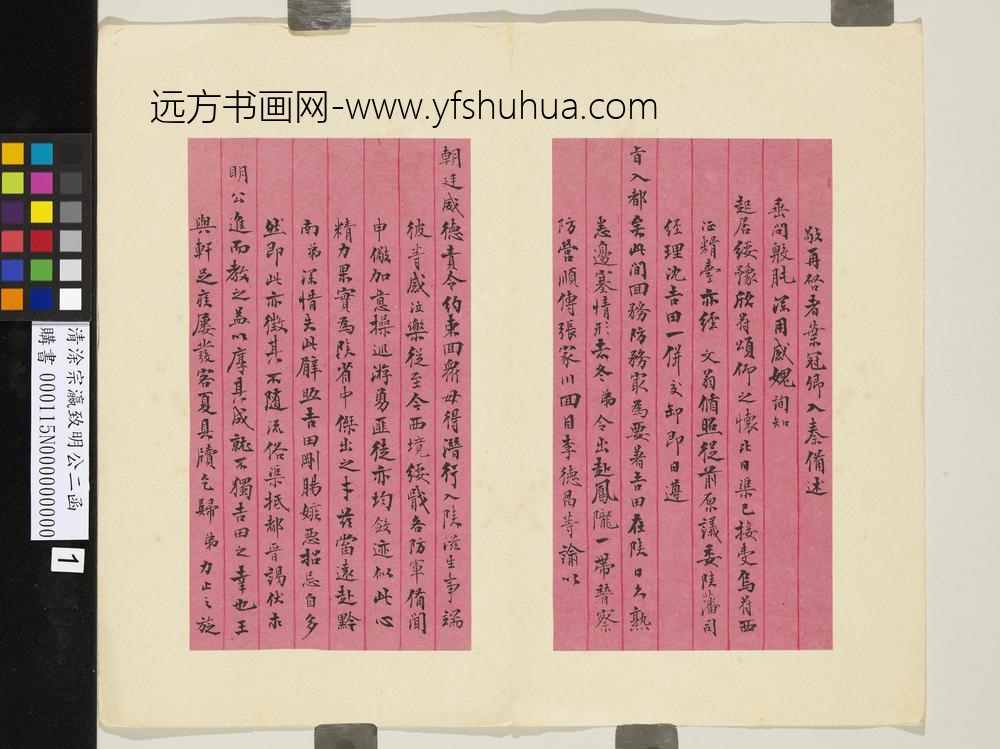 远方书画网-www.yfshuhua.com
敬再啓者葉冠卿入秦備述
垂問殷肫深用感媿詢知
起居綏豫欣符頌仰之懷此日渠已接
西
征糧臺亦經 文 翁循照從前原議委陝藩司
經理沈吉田一併交卸即日遵
旨入都矣此間回務防務最為要著吉田在陝日久熟
悉邊塞情形去冬弟令出赴鳳隴一帶督察
防營順傳張家川回目李德昌等諭以
朝廷威德責令約束回衆毋得潛行入陝滋生事端
彼等感泣樂從至今西境綏戢各防軍備聞
申儆加意操巡游勇匪徒亦均斂迹似此心
精力果實為陝省中傑出之才茲當遠赴黔
南弟深惜失此臂
吉田剛腸嫉惡招忌自多
然即此亦徵其不隨流俗渠抵都晉謁伏求
明公進而教之益以厚其成就不獨吉田之幸也王
與軒足疾屢發客夏具牘乞歸 弟力止之旋
清涂宗瀛致明公二函
購書 0001115N000000000
1